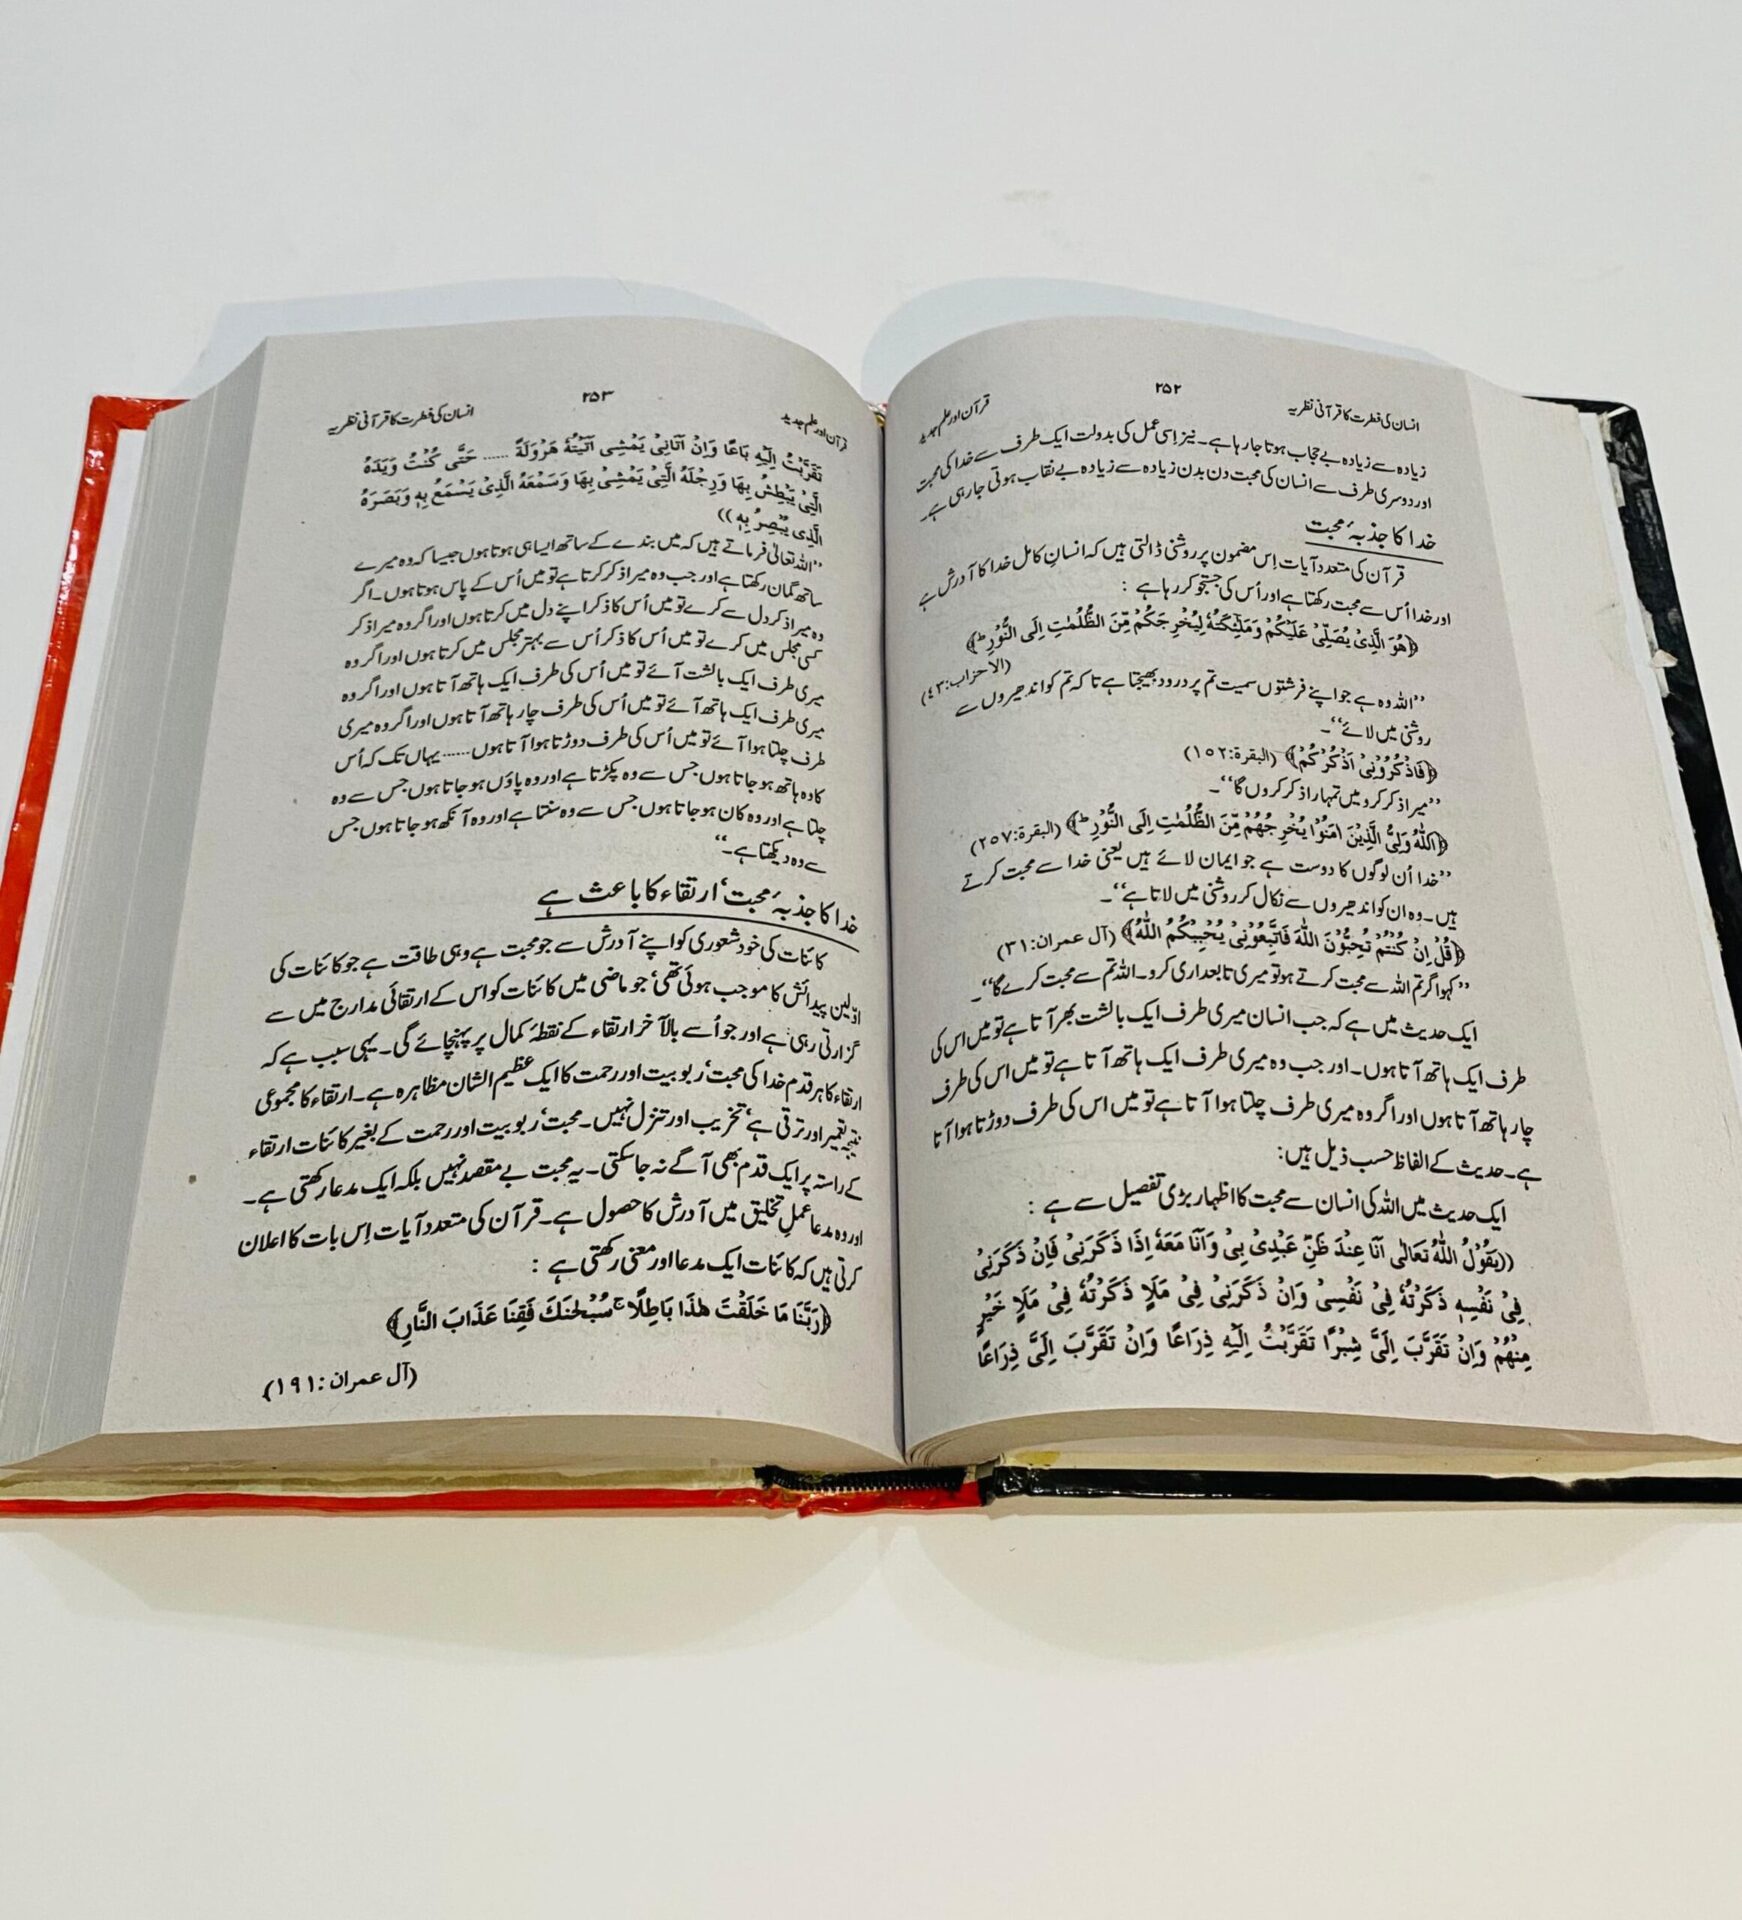 انسان کی فطرت کا قرآنی نظریہ ۲۵۲ قرآن اور علم جدید
زیادہ سے زیادہ بے حجاب ہوتا جا رہا ہے۔ نیز اِسی عمل کی بدولت ایک طرف سے خدا کی محبت
اور دوسری طرف سے انسان کی محبت دن بدن زیادہ سے زیادہ بے نقاب ہوتی جا رہی ہے۔
خدا کا جذبۂ محبت
قرآن کی متعدد آیات اِس مضمون پر روشنی ڈالتی ہیں کہ انسانِ کامل خدا کا آدرش ہے
اور خدا اُس سے محبت رکھتا ہے اور اُس کی جستجو کر رہا ہے :
﴿هُوَ الَّذِیْ یُصَلِّیْ عَلَیْکُمْ وَمَلٰٓئِکَتُهٗ لِیُخْرِجَکُمْ مِّنَ الظُّلُمٰتِ اِلَی النُّوْرِ ؕ﴾
(الاحزاب:۴۳)
’’اللہ وہ ہے جو اپنے فرشتوں سمیت تم پر درود بھیجتا ہے تاکہ تم کو اندھیروں سے
روشنی میں لائے‘‘۔
﴿فَاذْکُرُوْنِیْ اَذْکُرْکُمْ﴾ (البقرة:۱۵۲)
’’میرا ذکر کرو میں تمہارا ذکر کروں گا‘‘۔
﴿اَللّٰهُ وَلِیُّ الَّذِیْنَ اٰمَنُوْا یُخْرِجُهُمْ مِّنَ الظُّلُمٰتِ اِلَی النُّوْرِ ؕ﴾ (البقرة:۲۵۷)
’’خدا اُن لوگوں کا دوست ہے جو ایمان لائے ہیں یعنی خدا سے محبت کرتے
ہیں۔ وہ ان کو اندھیروں سے نکال کر روشنی میں لاتا ہے‘‘۔
﴿قُلْ اِنْ کُنْتُمْ تُحِبُّوْنَ اللّٰهَ فَاتَّبِعُوْنِیْ یُحْبِبْکُمُ اللّٰهُ﴾ (آل عمران:۳۱)
’’کہو اگر تم اللہ سے محبت کرتے ہو تو میری تابعداری کرو۔ اللہ تم سے محبت کرے گا‘‘۔
ایک حدیث میں ہے کہ جب انسان میری طرف ایک بالشت بھر آتا ہے تو میں اس کی
طرف ایک ہاتھ آتا ہوں۔ اور جب وہ میری طرف ایک ہاتھ آتا ہے تو میں اس کی طرف
چار ہاتھ آتا ہوں اور اگر وہ میری طرف چلتا ہوا آتا ہے تو میں اس کی طرف دوڑتا ہوا آتا
ہے۔ حدیث کے الفاظ حسب ذیل ہیں:
ایک حدیث میں اللہ کی انسان سے محبت کا اظہار بڑی تفصیل سے ہے :
((یَقُوْلُ اللّٰهُ تَعَالٰی اَنَا عِنْدَ ظَنِّ عَبْدِیْ بِیْ وَاَنَا مَعَهٗ اِذَا ذَکَرَنِیْ فَاِنْ ذَکَرَنِیْ
فِیْ نَفْسِهٖ ذَکَرْتُهٗ فِیْ نَفْسِیْ وَاِنْ ذَکَرَنِیْ فِیْ مَلَاٍ ذَکَرْتُهٗ فِیْ مَلَاٍ خَیْرٍ
مِنْهُمْ وَاِنْ تَقَرَّبَ اِلَیَّ شِبْرًا تَقَرَّبْتُ اِلَیْهِ ذِرَاعًا وَاِنْ تَقَرَّبَ اِلَیَّ ذِرَاعًا
قرآن اور علم جدید ۲۵۳ انسان کی فطرت کا قرآنی نظریہ
تَقَرَّبْتُ اِلَیْهِ بَاعًا وَاِنْ اَتَانِیْ یَمْشِیْ اَتَیْتُهٗ هَرْوَلَةً ...... حَتّٰی کُنْتُ وَیَدَهُ
الَّتِیْ یَبْطِشُ بِهَا وَرِجْلَهُ الَّتِیْ یَمْشِیْ بِهَا وَسَمْعَهُ الَّذِیْ یَسْمَعُ بِهٖ وَبَصَرَهُ
الَّذِی یُبْصِرُ بِهٖ))
’’اللہ تعالیٰ فرماتے ہیں کہ میں بندے کے ساتھ ایسا ہی ہوتا ہوں جیسا کہ وہ میرے
ساتھ گمان رکھتا ہے اور جب وہ میرا ذکر کرتا ہے تو میں اُس کے پاس ہوتا ہوں۔ اگر
وہ میرا ذکر دل سے کرے تو میں اُس کا ذکر اپنے دل میں کرتا ہوں اور اگر وہ میرا ذکر
کسی مجلس میں کرے تو میں اُس کا ذکر اُس سے بہتر مجلس میں کرتا ہوں اور اگر وہ
میری طرف ایک بالشت آئے تو میں اُس کی طرف ایک ہاتھ آتا ہوں اور اگر وہ
میری طرف ایک ہاتھ آئے تو میں اُس کی طرف چار ہاتھ آتا ہوں اور اگر وہ میری
طرف چلتا ہوا آئے تو میں اُس کی طرف دوڑتا ہوا آتا ہوں...... یہاں تک کہ اُس
کا وہ ہاتھ ہو جاتا ہوں جس سے وہ پکڑتا ہے اور وہ پاؤں ہو جاتا ہوں جس سے وہ
چلتا ہے اور وہ کان ہو جاتا ہوں جس سے وہ سنتا ہے اور وہ آنکھ ہو جاتا ہوں جس
سے وہ دیکھتا ہے۔‘‘
خدا کا جذبۂ محبت‘ ارتقاء کا باعث ہے
کائنات کی خود شعوری کو اپنے آدرش سے جو محبت ہے وہی طاقت ہے جو کائنات کی
اوّلین پیدائش کا موجب ہوئی تھی‘ جو ماضی میں کائنات کو اس کے ارتقائی مدارج میں سے
گزارتی رہی ہے اور جو اُسے بالآخر ارتقاء کے نقطۂ کمال پر پہنچائے گی۔ یہی سبب ہے کہ
ارتقاء کا ہر قدم خدا کی محبت‘ ربوبیت اور رحمت کا ایک عظیم الشان مظاہرہ ہے۔ ارتقاء کا مجموعی
نتیجہ تعمیر اور ترقی ہے‘ تخریب اور تنزل نہیں۔ محبت‘ ربوبیت اور رحمت کے بغیر کائنات ارتقاء
کے راستہ پر ایک قدم بھی آگے نہ جا سکتی۔ یہ محبت بے مقصد نہیں بلکہ ایک مدعا رکھتی ہے۔
اور وہ مدعا عمل تخلیق میں آدرش کا حصول ہے۔ قرآن کی متعدد آیات اِس بات کا اعلان
کرتی ہیں کہ کائنات ایک مدعا اور معنی رکھتی ہے :
﴿رَبَّنَا مَا خَلَقْتَ هٰذَا بَاطِلًا ۚ سُبْحٰنَكَ فَقِنَا عَذَابَ النَّارِ﴾
(آل عمران:۱۹۱)